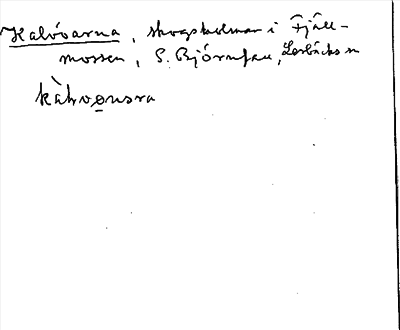 Kalvöarna, skogsholmar i Fjäll-
mossen, S. Björnfall, Lerbäcks sn
kàlvo̲nsra